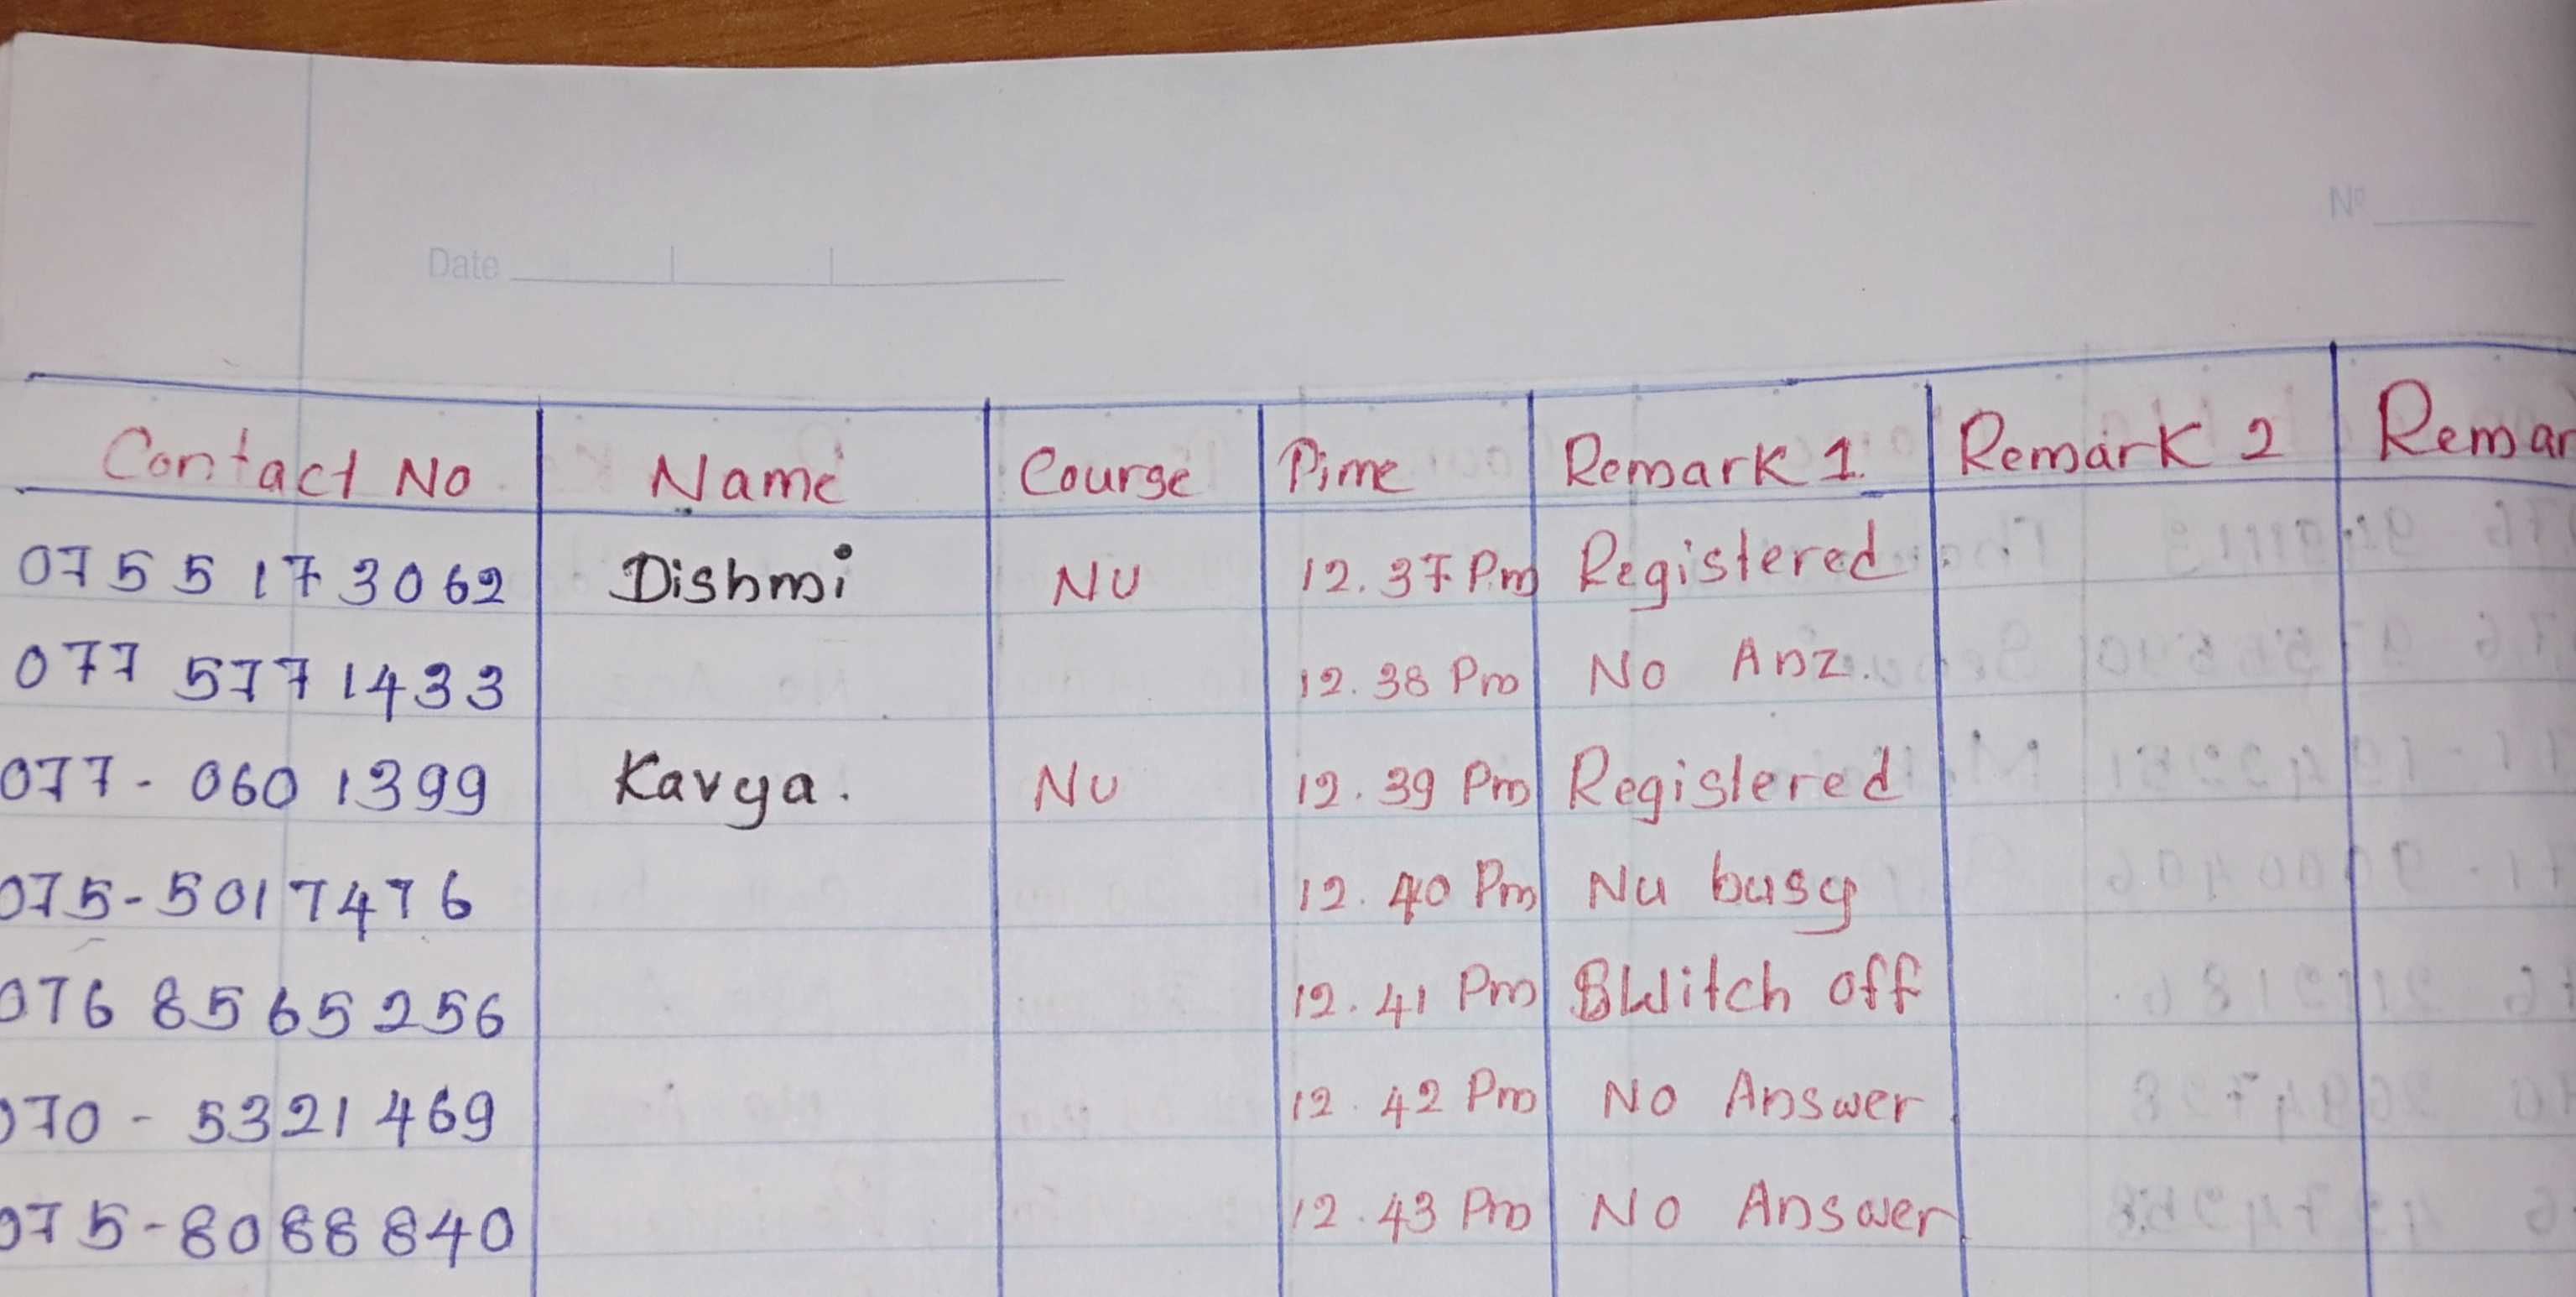 Nº
Date
Contact No Name Course Time Remark 1 Remark 2 Remar
0755173062 Dishmi NU 12.37 Pm Registered
077 5771433 12.38 Pm No Anz.
077-060 1399 Kavya. NU 12.39 Pm Registered
075-5017476 12.40 Pm Nu busy
076 8565256 12.41 Pm SWitch off
070-5321469 12.42 Pm No Answer
075-8088840 12.43 Pm No Answer